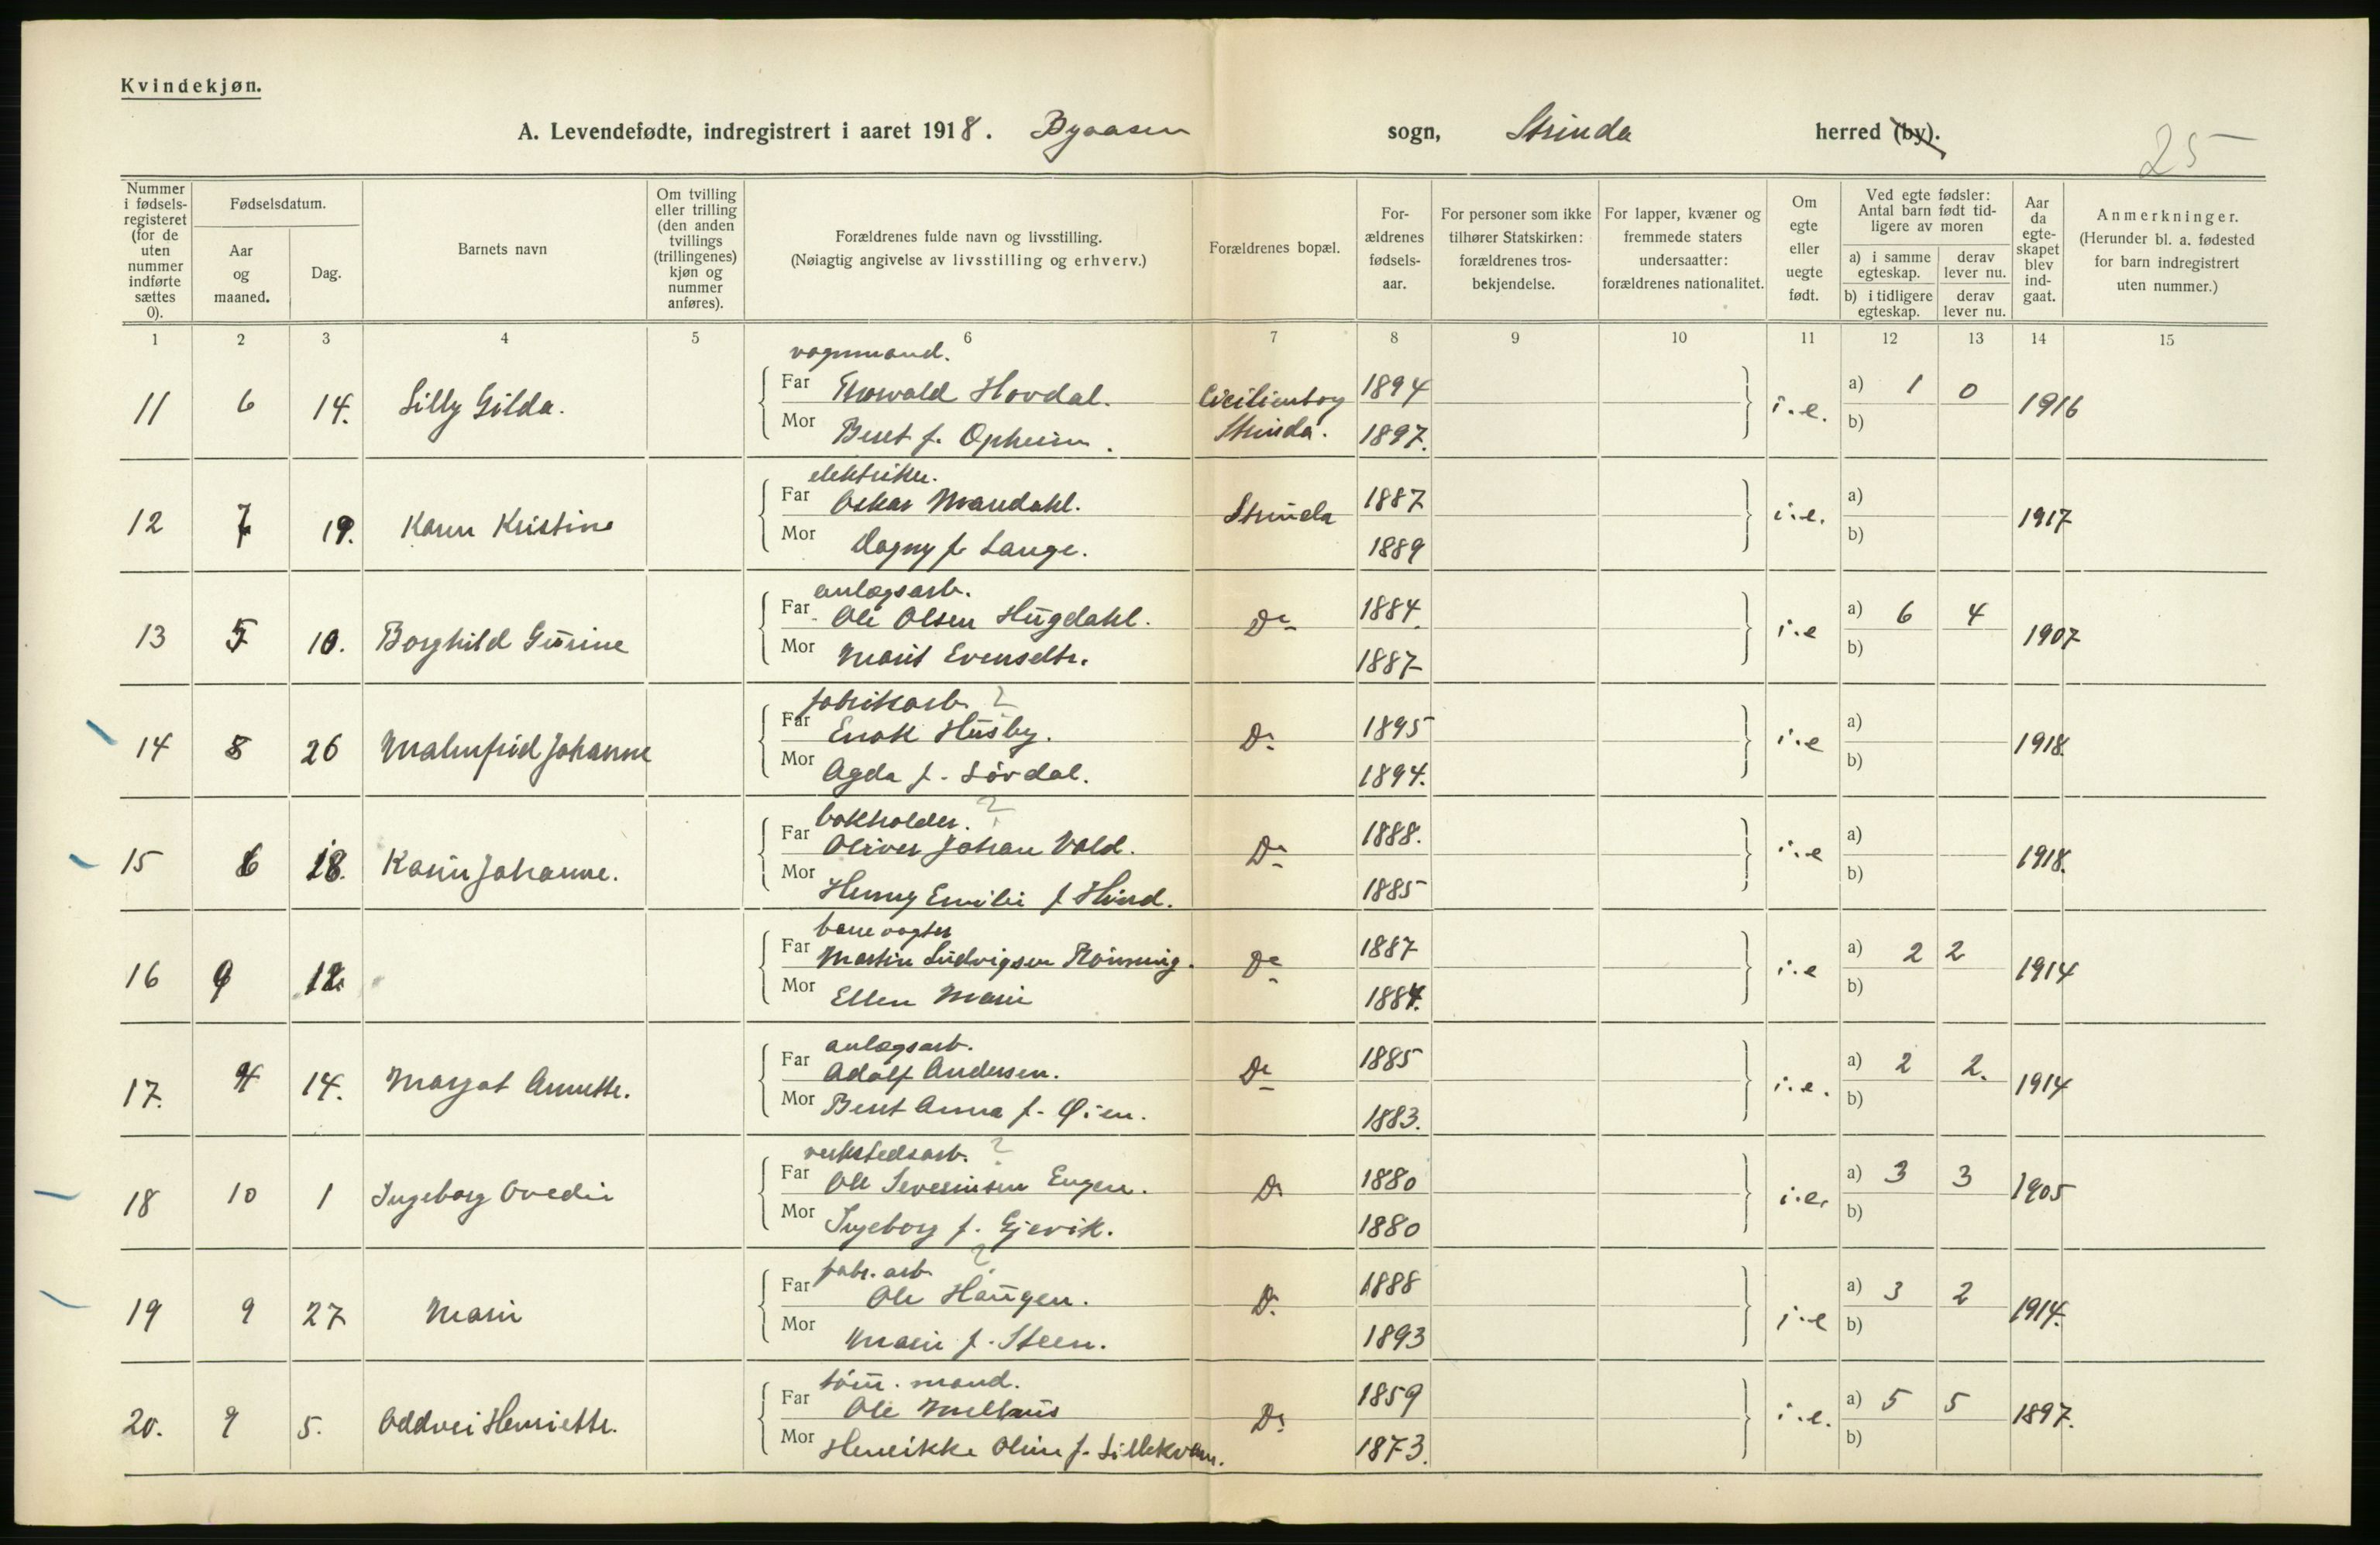 Kvindekjøn.
A. Levendefødte, indregistrert i aaret 1918. Byaasen sogn, Strinda herred (by).
25
Nummer i fødselsregisteret (for de uten nummer indførte sættes 0).
Fødselsdatum.
Aar og maaned.
Dag.
Barnets navn
Om tvilling eller trilling (den anden tvillings (trillingenes) kjøn og nummer anføres).
Forældrenes fulde navn og livsstilling.
(Nøiagtig angivelse av livsstilling og erhverv.)
Forældrenes bopæl.
For-ældrenes fødsels-aar.
For personer som ikke tilhører Statskirken: forældrenes tros-bekjendelse.
For lapper, kvæner og fremmede staters undersaatter: forældrenes nationalitet.
Om egte eller uegte født.
Ved egte fødsler: Antal barn født tid-ligere av moren
a) i samme egteskap.
derav lever nu.
b) i tidligere egteskap.
derav lever nu.
Aar da egte-skapet blev ind-gaat.
Anmerkninger.
(Herunder bl. a. fødested for barn indregistrert uten nummer.)
1 2 3 4 5 6 7 8 9 10 11 12 13 14 15
vognmand.
11 6 14. Lilly Gilda. Far Thorvald Hovdal. Cicilienborg Strinda. 1894 i.e. a) 1 0 1916
Mor Beret f. Opheim. 1897. b)
elektriker.
12 7 19. Karen Kristine Far Oskar Mandahl. Strinda 1887 i.e. a) 1917
Mor Dagny f. Lange. 1889 b)
anlægsarb.
13 5 10. Borghild Gurine Far Ole Olsen Hugdahl. Do 1884. i.e a) 6 4 1907
Mor Marit Evensdtr. 1887 b)
fabrikarb. ?
14 8 26 Malmfrid Johanne Far Enok Husby. Do 1895 i.e a) 1918.
Mor Agda f. Lørdal. 1894. b)
bokholder. ?
15 6 18. Karin Johanne. Far Oliver Johan Vold. Do 1888. i.e a) 1918.
Mor Henny Emilie f Hind. 1885 b)
banevogter
16 9 12. Far Martin Ludvigsen Rønning. Do 1887 i.e a) 2 2 1914
Mor Ellen Marie 1884. b)
anlægsarb.
17. 4 14. Margot Annette. Far Adolf Andersen. Do 1885 i.e. a) 2 2. 1914
Mor Beret Anna f. Øien. 1883. b)
verkstedsarb. ?
18 10 1 Ingeborg Ovedie Far Ole Severinsen Engen. Do 1880 i.e. a) 3 3 1905
Mor Ingeborg f. Gjevik. 1880 b)
fabr. arb. ?
19 9 27 Marie Far Ole Haugen. Do 1888 i.e a) 3 2 1914.
Mor Marie f. Steen. 1893 b)
tøm. mand.
20. 9 5. Oddvei Henriette. Far Ole Melhus Do 1859 i.e. a) 5 5 1897.
Mor Henrikke Oline f. Lillekvam. 1873. b)